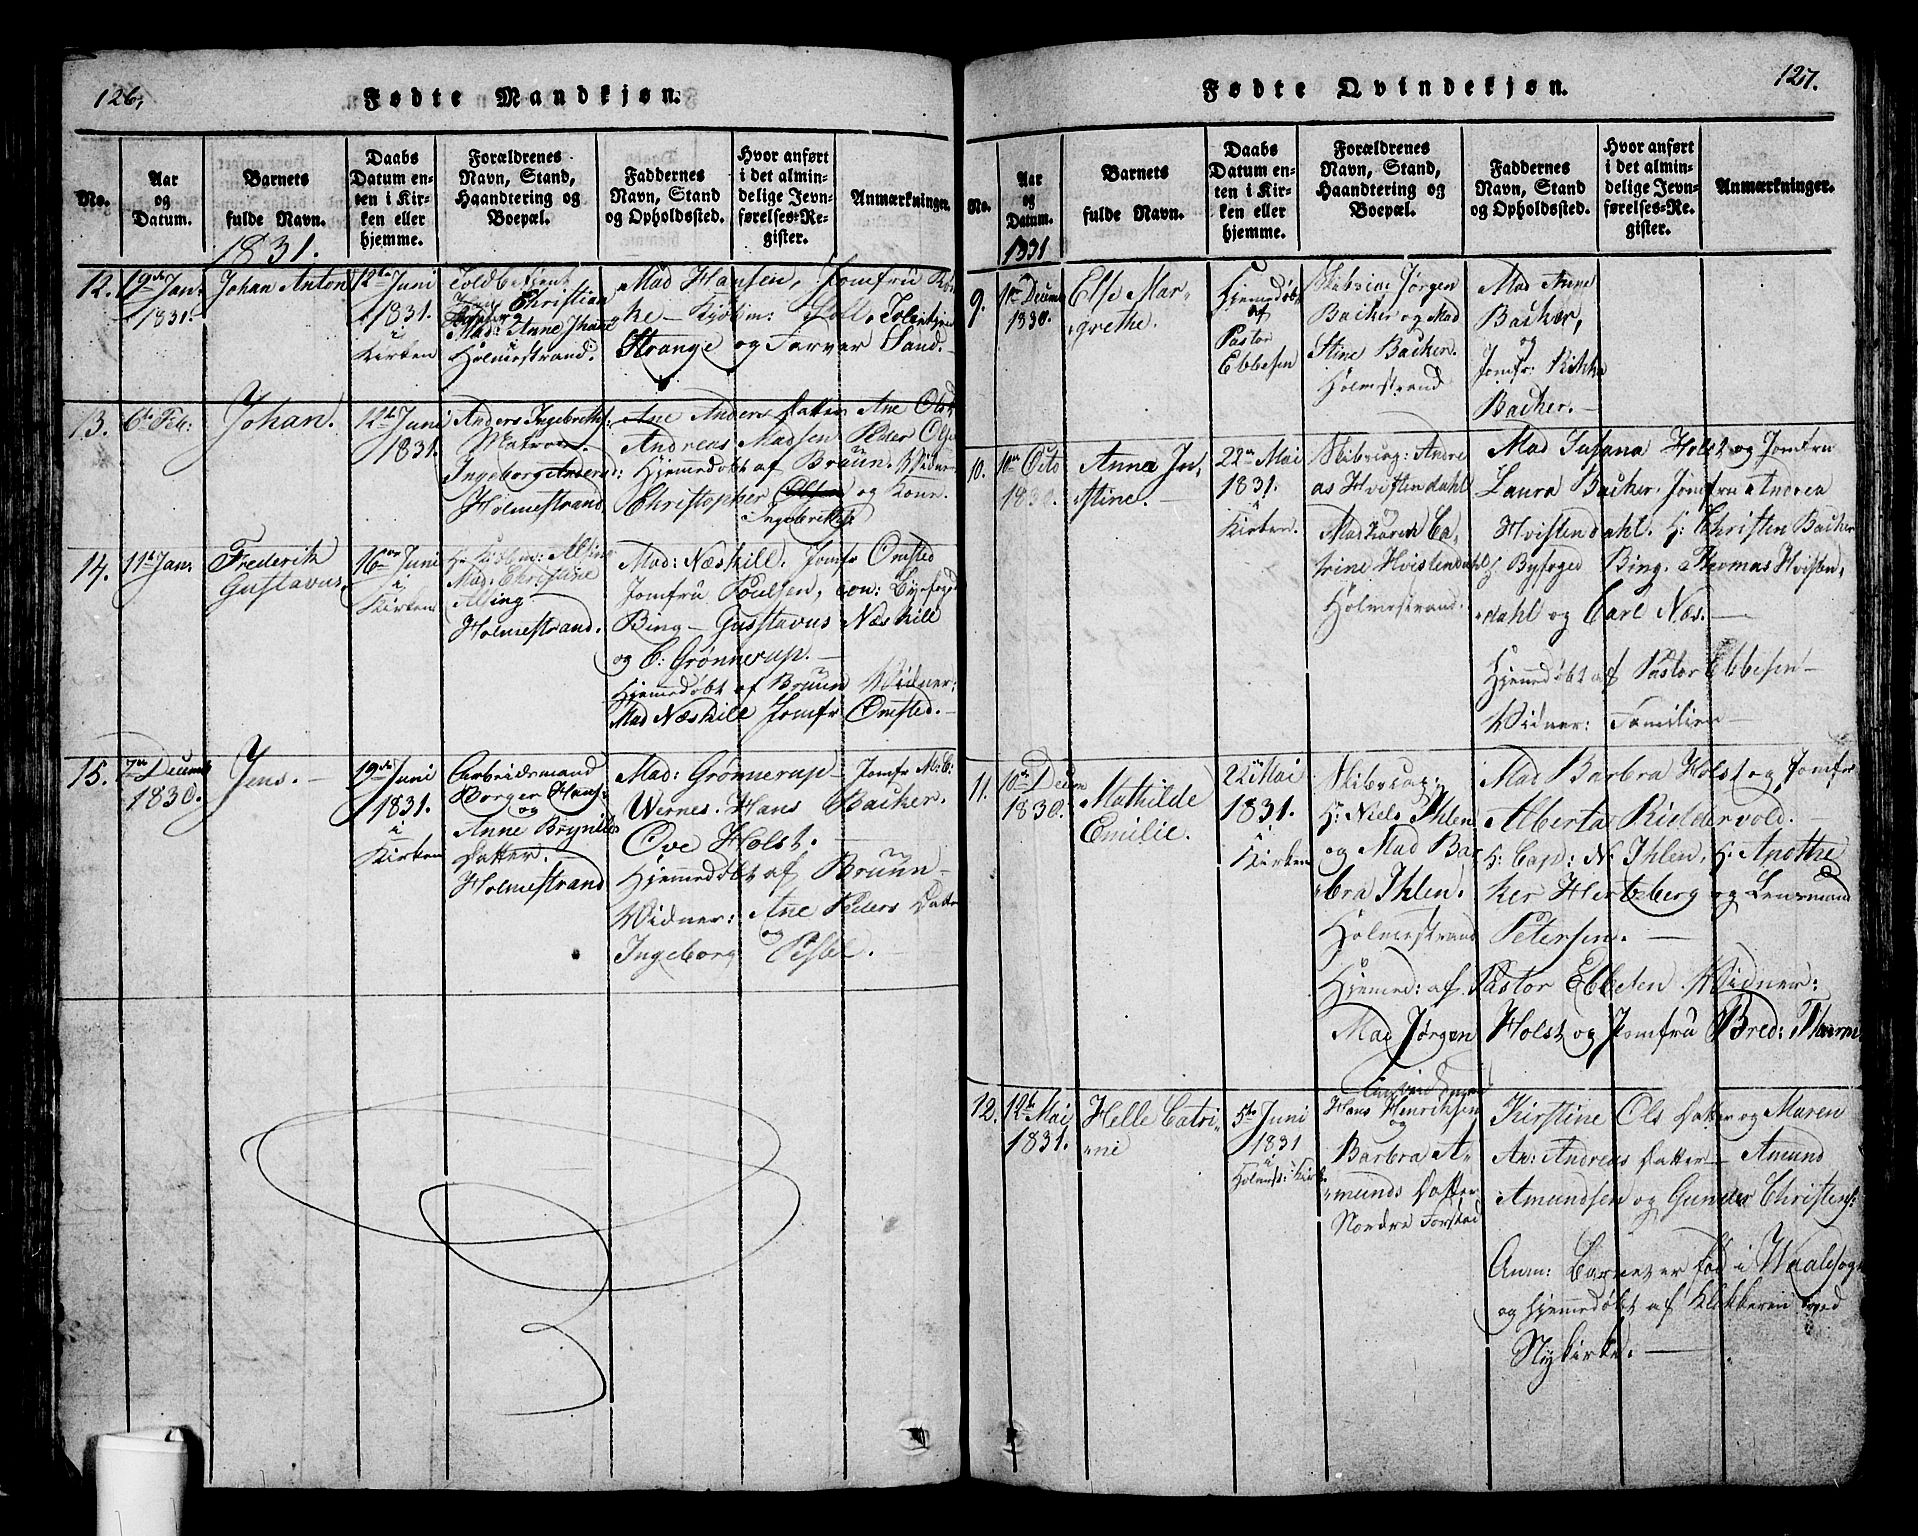 126,
Fødte Mandkjøn.
No.
Aar
og
Datum.
Barnets
fulde Navn.
Daabs
Datum en-
ten i Kir-
ken eller
hjemme.
Forældrenes
Navn, Stand,
Haandtering og
Boepæl.
Faddernes
Navn, Stand
og Opholdssted.
Hvor anført
i det almin-
delige Jevn-
førelses-Re-
gister.
Anmærkninger.
1831.
12.
19de Jan:
1831.
Johan Anton
12te Juni
1831.
i
Kirken
Toldbetjent
Christian
Mad: Anne
Holmestrand.
Mad Hansen, Jomfru
Strange og Farver Sand.
13.
6te Feb:
Johan.
12te Juni
1831.
Anders Ingebrigths:
Matros
Ingeborg Anders:
Holmestrand
Ane Anders Datter Ane
Andreas Madsen Peder Olse
Hjemmedøbt af Bruun. Widner
Christopher og Kone.
Ingebrikts
14.
11te Jan:
Frederik
Gustavus.
16de Juni
i
Kirken
Alsing
Mad: Christine
Alsing
Holmestrand.
Mad: Næskill. Jomfr Omsted
Jomfru Poulsen, con: Byefoged
Bing - Gusstavus Næskill
og C: Grønnerup.
Hjemmedøbt af Bruun Widner:
Mad Næskill Jomfr Omsted.
15.
7de Decemb
1830.
Jens.
19de Juni
1831.
i
Kirken
Arbeidsmand
Borger Hans:
og
Anne Brynils
Datter.
Holmestrand
Mad: Grønnerup - Jomfr M: C:
Wernes. Hans Backer.
Ove Holst.
Hjemmedøbt af Bruun -
Widner: Ane Peders Datter
og
Ingeborg
127.
Fødte Qvindekjøn.
No.
Aar
og
Datum.
1831
Barnets
fulde Navn.
Daabs
Datum en-
ten i Kir-
ken eller
hjemme.
Forældrenes
Navn, Stand,
Haandtering og
Boepæl.
Faddernes
Navn, Stand
og Opholdssted.
Hvor anført
i det almin-
delige Jevn-
førelses-Re-
gister.
Anmærkninger.
9.
Decemb
1830.
Else Mar-
grethe.
Hjemmedøbt
af
Pastor
Ebbesen
Skibscap: Jørgen
Backer og Mad
Stine Backer.
Holmestrand
Mad Anne
Backer,
og
Jomfr: Rikke
Backer.
10.
Octo
1830.
Anna Ju,
stine.
22de Mai
1831.
i
Kirken.
Skibscap: Andre
as Hvistendahl
Mad Karen Ca,
trine Hvistendahl
Holmestrand.
Mad Susana Holst og Jomfru
Laura Backer. Jomfru Andrea
Hvistendahl. H: Christen Backer
H: Byfoged Bing. Thomas Hvisten,
dahl og Carl Næs.
Hjemmedøbt af Pastor Ebbesen
Widner: Familien
11.
10de Decem
1830.
Mathilde
Emilie.
22de Mai
1831.
i
Kirken
Skibscap:
H: Niels Ihlen
og Mad Bar
bra Ihlen.
Holmestrand
Mad Barbra Holst og Jomfr
Alberta Riddervold.
H: Cap: N. Ihlen, H: Apothe
ker Hertzberg og Lensmand
Petersen.
Hjemmed: af Pastor Ebbesen Widner:
Mad Jørgen Holst og Jomfru Bred:
12.
12te Mai
1831.
Helle Catri,
ne
5te Juni
1831
i
Holmest: Kirke
Hans Henriksen
og
Barbra A-
munds Datter
Nordre Forstad
Kirstine Ols Datter og Maren
Andreas Datter - Amund
Amundsen og Gunder Christens:
Anm: Barnet er fød i Waalesogn
og Hjemmedøbt af Klokkeren ved
Nykirke.